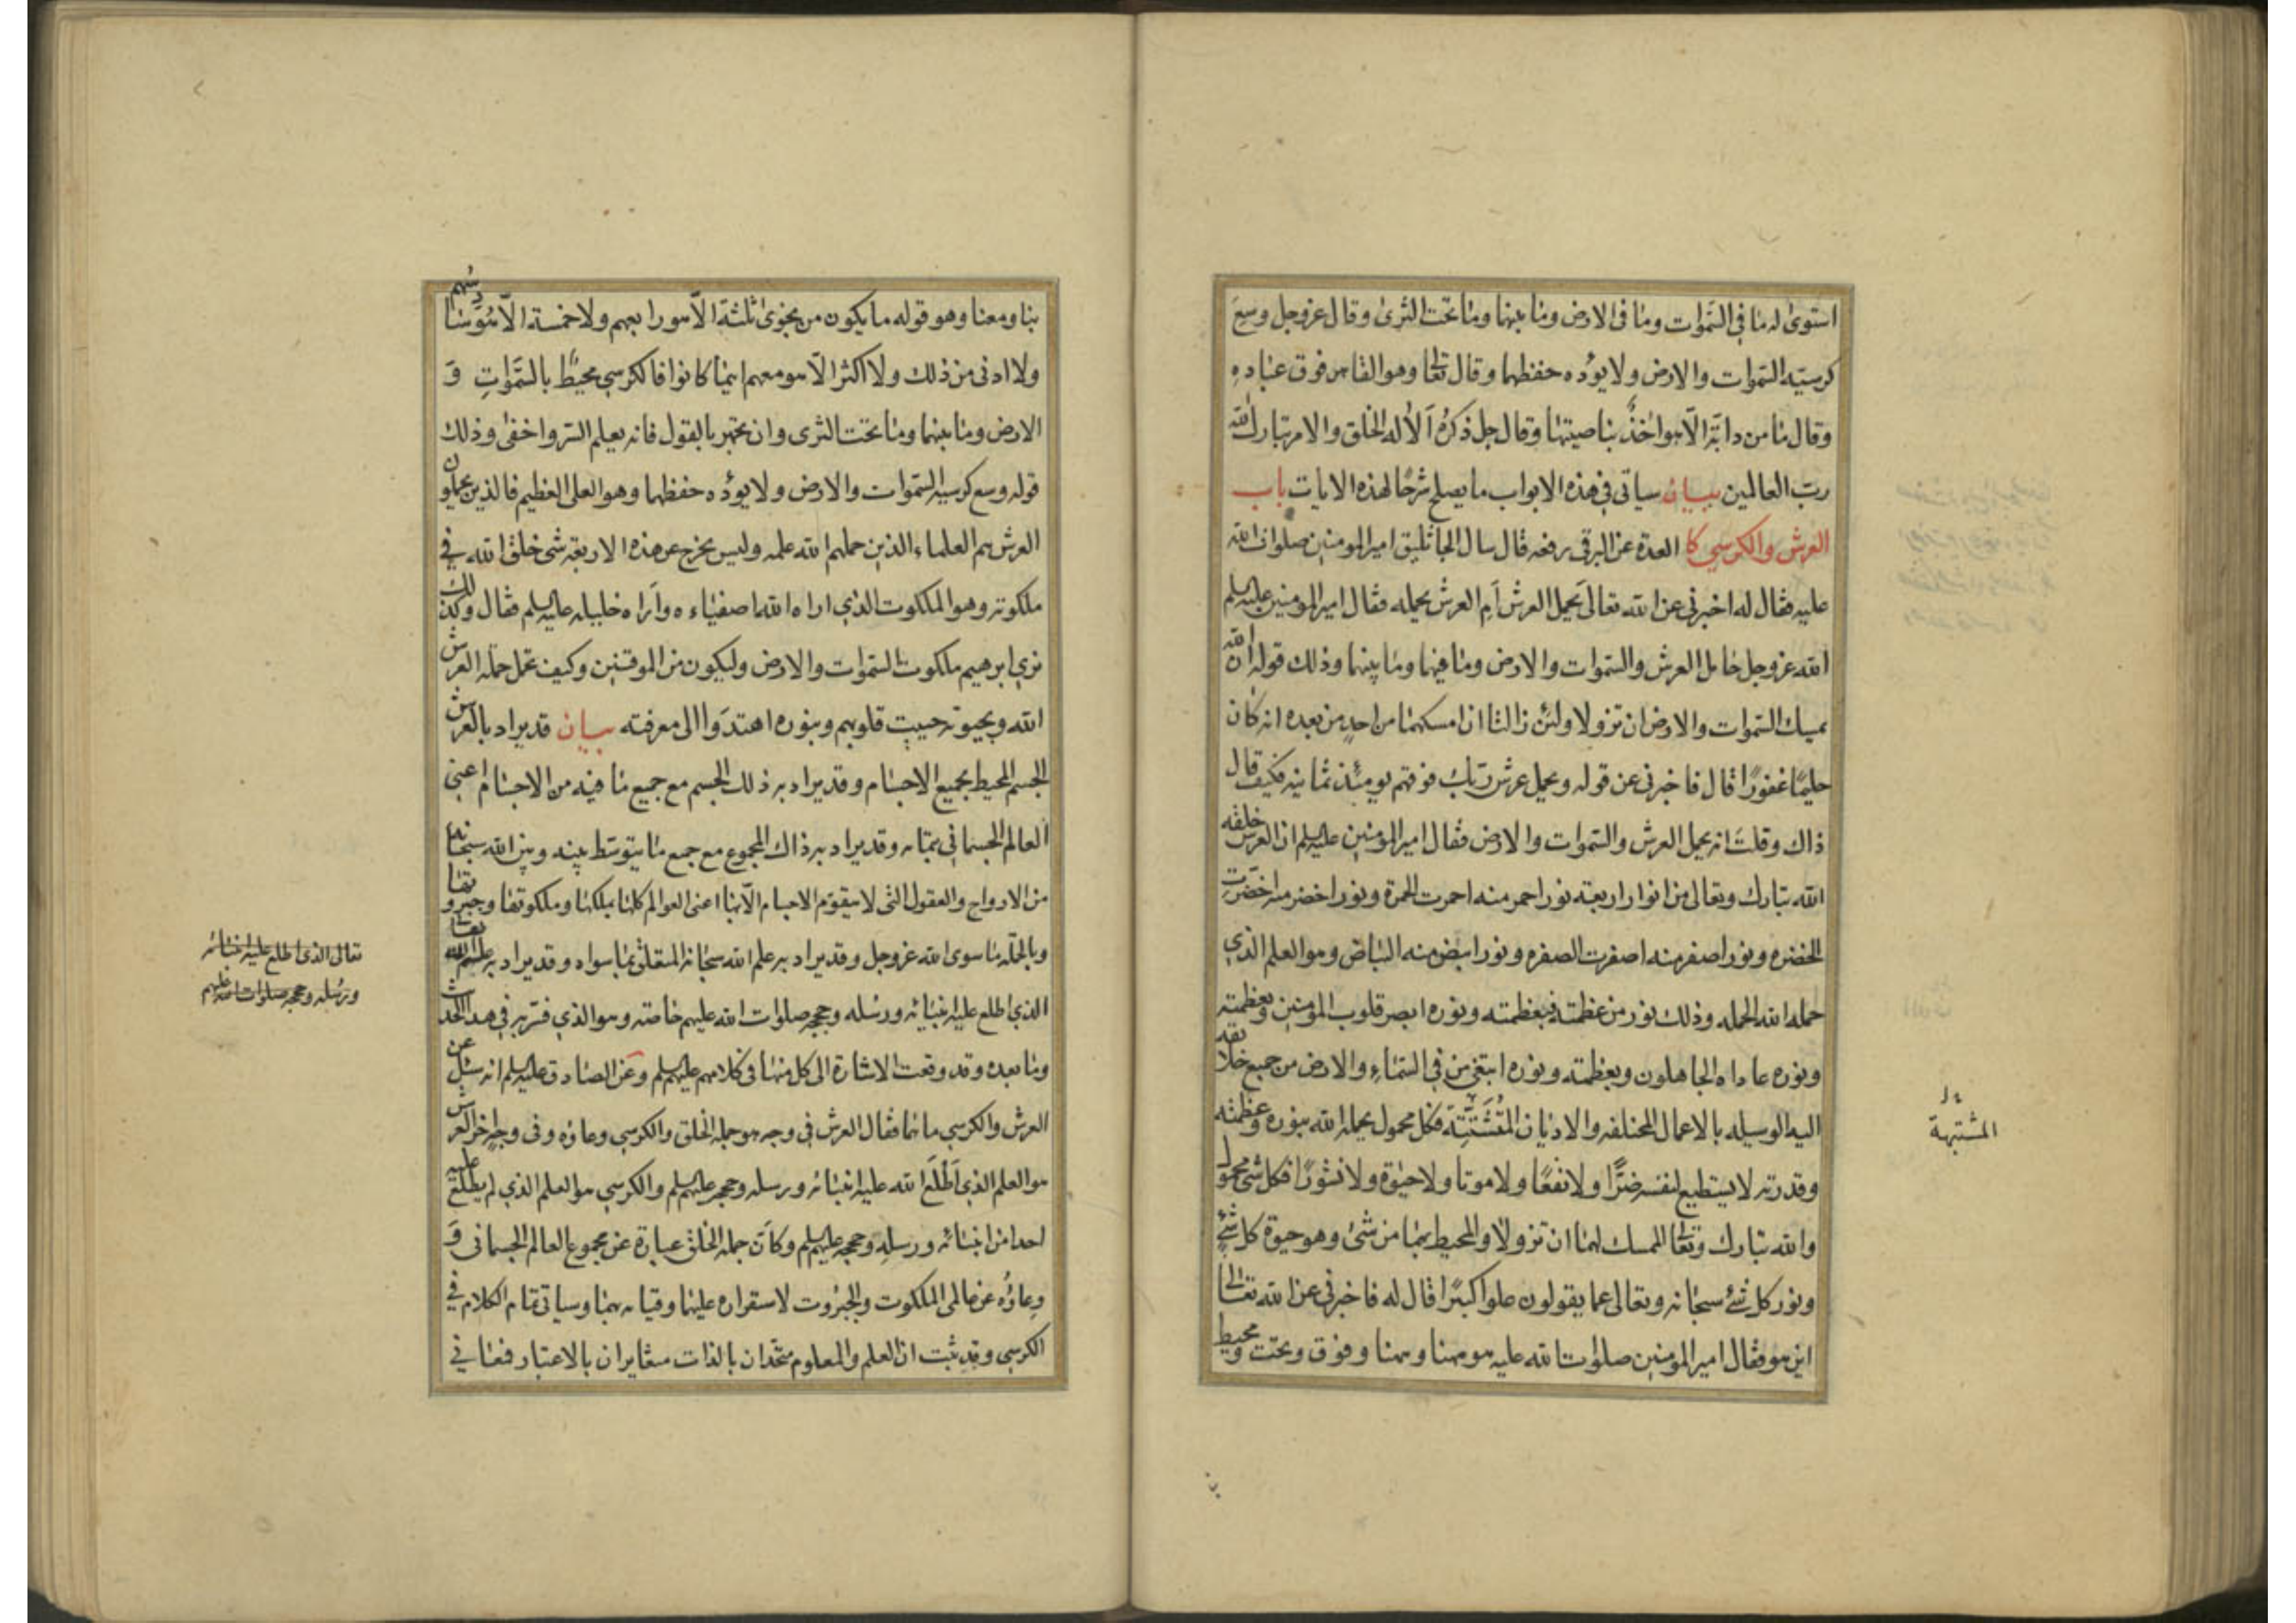 استوى له ما فى السموات وما فى الارض وما بينهما وما تحت الثرى وقال عز وجل وسع
كرسيه السموات والارض ولا يؤده حفظهما وقال تعالى وهو القاهر فوق عباده
وقال ما من دابة الا هو اخذ بناصيتها وقال جل ذكره الا له الخلق والامر تبارك الله
رب العالمين بيان سياتى فى هذه الابواب ما يصلح شرحا لهذه الايات باب
العرش والكرسي كا العدة عن البرقى رفعه قال سال الجاثليق امير المومنين صلوات الله
عليه فقال له اخبرنى عن الله تعالى يحمل العرش ام العرش يحمله فقال امير المومنين عليه السلم
الله عز وجل حامل العرش والسموات والارض وما فيهما وما بينهما وذلك قوله ان الله
يمسك السموات والارض ان تزولا ولئن زالتا ان امسكهما من احد من بعده انه كان
حليما غفورا قال فاخبرنى عن قوله ويحمل عرش ربك فوقهم يومئذ ثمانيه فكيف قال
ذاك وقلت انه يحمل العرش والسموات والارض فقال امير المومنين عليه السلم ان العرش خلقه
الله تبارك وتعالى من انوار اربعة نور احمر منه احمرت الحمرة ونور اخضر منه اخضرت
الخضره ونور اصفر منه اصفرت الصفره ونور ابيض منه البياض وهو العلم الذي
حمله الله الحمله وذلك نور من عظمته فبعظمته ونوره ابصر قلوب المومنين وبعظمته
ونوره عاداه الجاهلون وبعظمته ونوره ابتغى من فى السماء والارض من جميع خلايقه
اليه الوسيله بالاعمال المختلفه والاديان المتشتتة فكل محمول يحمله الله بنوره وعظمته
وقدرته لا يستطيع لنفسه ضرا ولا نفعا ولا موتا ولا حيوة ولا نشورا فكل شئ محمول
والله تبارك وتعالى الممسك لهما ان تزولا والمحيط بهما من شئ وهو حيوة كل شئ
ونور كل شئ سبحانه وتعالى عما يقولون علوا كبيرا قال له فاخبرنى عن الله تعالى
اين هو فقال امير المومنين صلوات الله عليه هو ههنا وههنا وفوق وتحت ومحيط
المشتبهة
بنا ومعنا وهو قوله ما يكون من نجوى ثلثة الا هو رابعهم ولا خمسة الا هو سادسهم
ولا ادنى من ذلك ولا اكثر الا هو معهم اينما كانوا فالكرسي محيط بالسموات و
الارض وما بينهما وما تحت الثرى وان تجهر بالقول فانه يعلم السر واخفى وذلك
قوله وسع كرسيه السموات والارض ولا يوده حفظهما وهو العلى العظيم فالذين يحملون
العرش هم العلماء الذين حملهم الله علمه وليس يخرج عن هذه الاربعة شئ خلق الله فى
ملكوته وهو الملكوت الذي اراه الله اصفياءه واراه خليله عليه السلم فقال وكذلك
نري ابرهيم ملكوت السموات والارض وليكون من الموقنين وكيف تحمل حملة العرش
الله وبحيوته حييت قلوبهم وبنوره اهتدوا الى معرفته بيان قد يراد بالعرش
الجسم المحيط بجميع الاجسام وقد يراد به ذلك الجسم مع جميع ما فيه من الاجسام اعنى
العالم الجسمانى بتمامه وقد يراد به ذاك المجموع مع جمع ما يتوسط بينه وبين الله سبحانه
من الارواح والعقول التى لا يتقوم الاجسام الا بها اعنى العوالم كلها بملكها وملكوتها وجبروتها
وبالجملة ما سوى الله عز وجل وقد يراد به علم الله سبحانه المتعلق بما سواه وقد يراد به علم الله تعالى
الذي اطلع عليه انبيائه ورسله وحججه صلوات الله عليهم خاصة وهو الذي فسر به فى هذا الحديث
وما بعده وقد وقعت الاشارة الى كل منها فى كلامهم عليهم السلم وعن الصادق عليه السلم انه سئل عن
العرش والكرسي ما هما فقال العرش فى وجه هو جملة الخلق والكرسي وعاؤه وفى وجه اخر العرش
هو العلم الذي اطلع الله عليه انبيائه ورسله وحججه عليهم السلم والكرسي هو العلم الذي لم يطلع عليه
احدا من انبيائه ورسله وحججه عليهم السلم وكان جملة الخلق عبارة عن مجموع العالم الجسمانى و
وعاؤه عن عالمى الملكوت والجبروت لاستقراره عليهما وقيامه بهما وسياتى تمام الكلام فى
الكرسى وقد ثبت ان العلم والمعلوم متحدان بالذات متغايران بالاعتبار فمعانى
تعالى الذى اطلع عليه انبيائه
ورسله وحججه صلوات الله عليهم